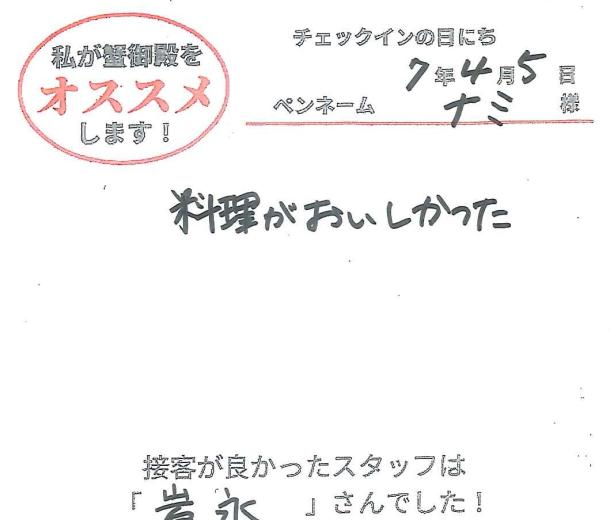 私が蟹御殿を
オススメ
します！
チェックインの日にち
7年4月5日
ペンネーム ナミ 様
料理がおいしかった
接客が良かったスタッフは
「岩永」さんでした！